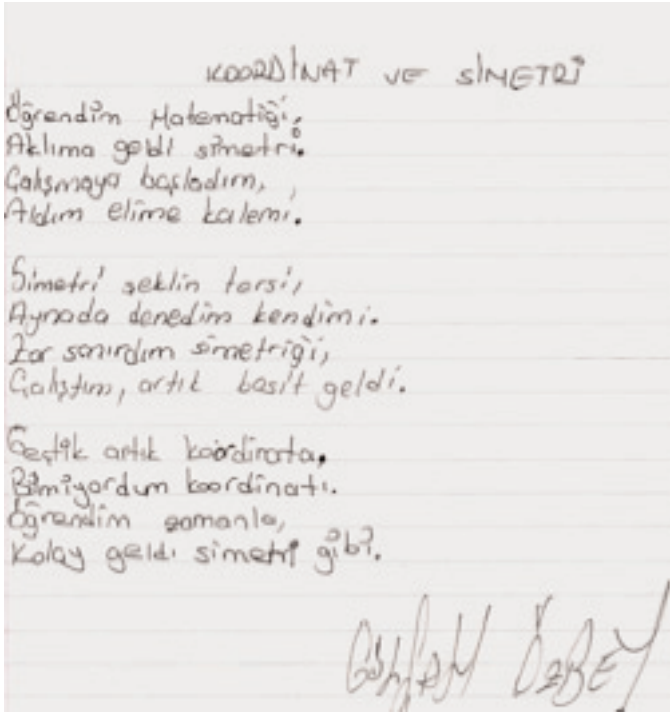 KOORDİNAT VE SİMETRİ
Öğrendim Matematiği,
Aklıma geldi simetri.
Çalışmaya başladım,
Aldım elime kalemi.
Simetri şeklin tersi,
Aynada denedim kendimi.
Zor sanırdım simetriği,
Çalıştım, artık basit geldi.
Geçtik artık koordinata,
Bilmiyordum koordinatı.
Öğrendim zamanla,
Kolay geldi simetri gibi.
ÖZBEY